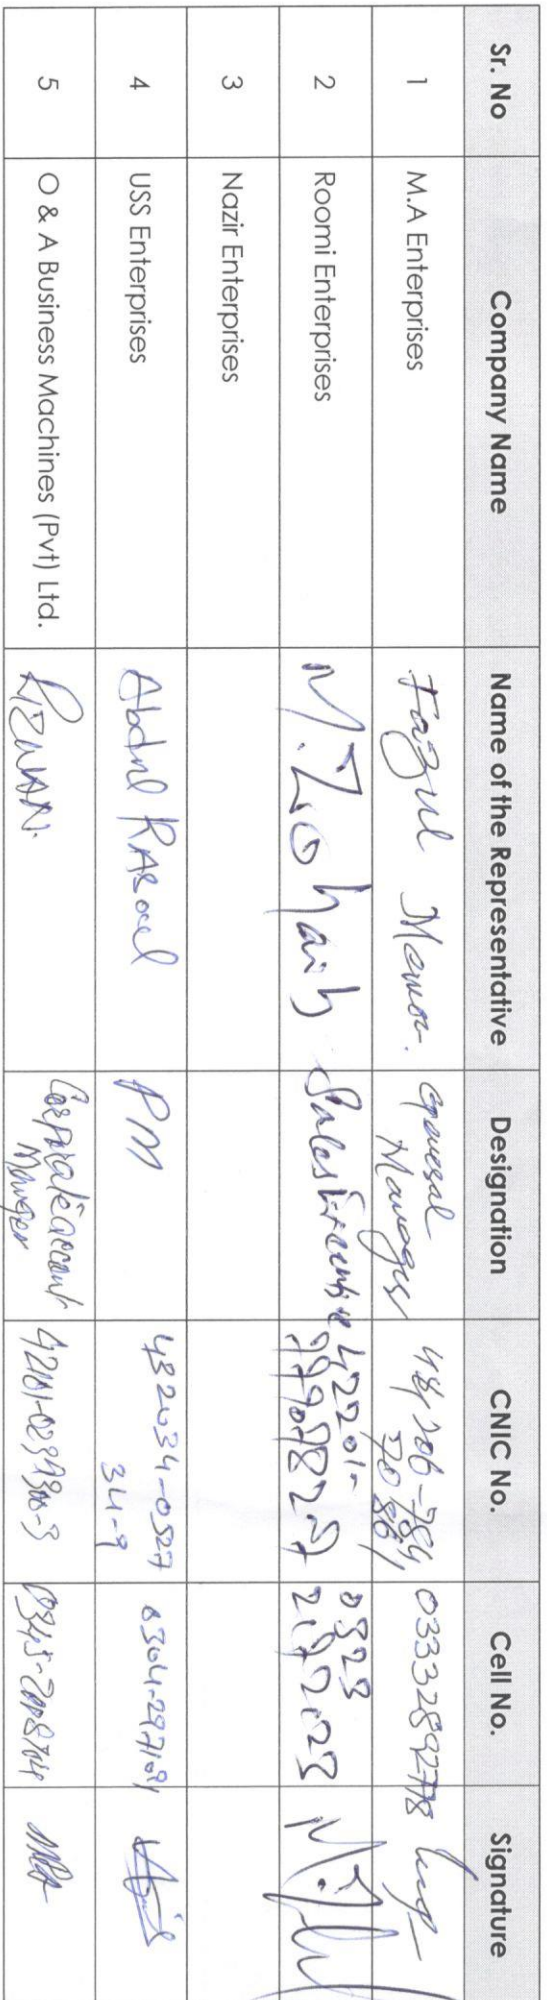 Sr. No Company Name Name of the Representative Designation CNIC No. Cell No. Signature
1 M.A Enterprises Fazul Memon. General
Manager
03332892778
2 Roomi Enterprises M.Zohaib Sales Executive 42201-
0323
2192023
3 Nazir Enterprises
4 USS Enterprises Abdul RAsool PM 432034-0527
34-9
0304-2971091
5 O & A Business Machines (Pvt) Ltd. RIZWAN. Corporate account
Manager